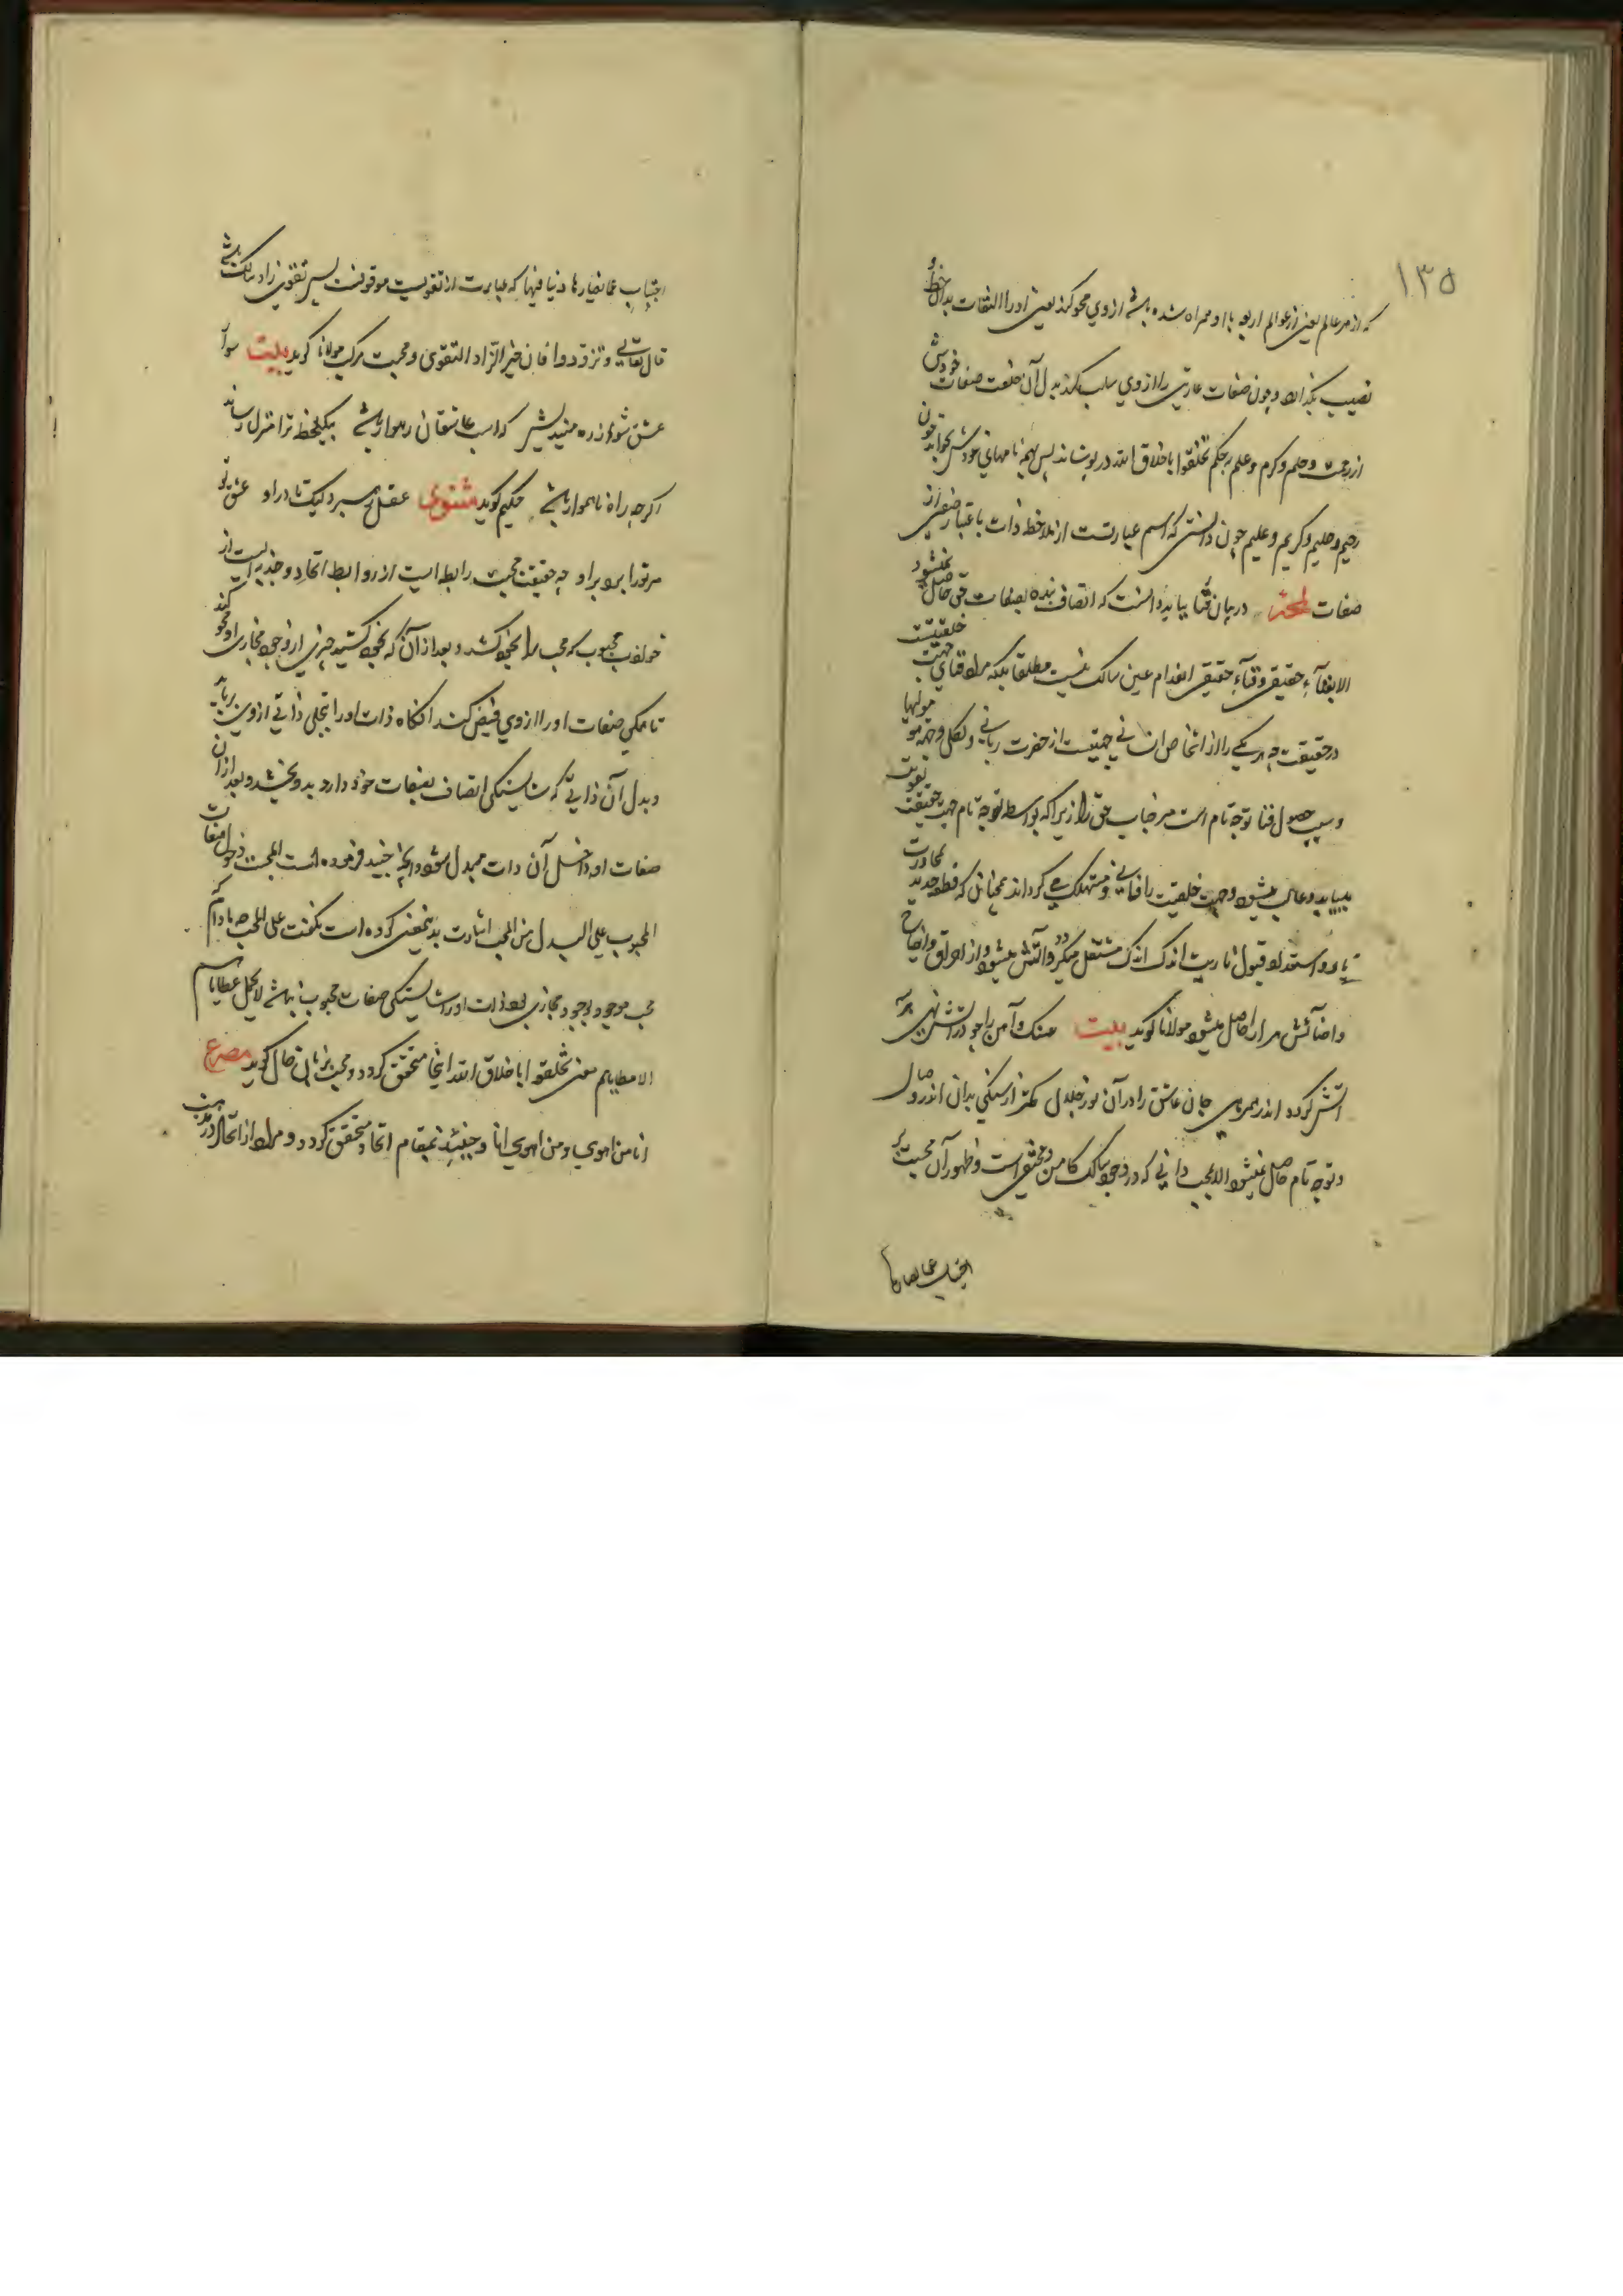 ١٣٥
که از هر عالم یعنی از عوالم اربعه با او همراه شده باشد ازوی محو کند یعنی او را التفات بدان حظ و
نصیب نگذارد و چون صفات عاریتی را ازوی سلب کند بدل آن خلعت صفات خودش
از رحمت و حلم و کرم و علم بحکم تخلقوا باخلاق الله در پوشاند پس همه نامهای خودش بخواند چون
رحیم و حلیم و کریم و علیم چون دانستی که اسم عبارتست از ملاحظه ذات باعتبار صفتی از
صفات لمحه در بیان فنا بباید دانست که اتصاف بنده بصفات حق حاصل نمیشود
الا بفناء حقیقی و فناء حقیقی انعدام عین سالک نیست مطلقا بلکه مراد فنای جهت خلقیت
در حقیقت چه هر یکی را از اشخاص انسانی جهتیست از حضرت ربانی و لکل وجهة هو مولیها
و سبب حصول فنا توجه تام است مر جناب حق را زیرا که بواسطه توجه تام جهت حقیقت تقویت
بیابد و غالب میشود و جهت خلقیت را فانی و مستهلک می گرداند همچنانکه قطعه حدید بمجاورت
نار و استعداد قبول ناریت اندک اندک مشتعل میگردد و آتش میشود و از احراق و انضاج
و اضائتش مر او را حاصل میشود مولانا گوید بیت سنگ و آهن را چو در آتش نهی بر
آتش کرده اند همرهی جان عاشق را در آن نور جلال کمتر از سنگی بدان اندر وصال
و توجه تام حاصل نمیشود الا بمحبت ذاتی که در وجود سالک کامن و مختفی است و ظهور آن محبت بر
اجتناب عما یضادها
اجتناب عما یضادها و ینافیها که عبارت از تقویست موقوفست پس تقوی زاد سالک باشد
قال تعالی و تزودوا فان خیر الزاد التقوی و محبت مرکب مولانا گوید بیت سوار
عشق شو و از ره میندیش که اسب عاشقان رهوار باشد بیکلحظه ترا منزل رساند
اگرچه راه ناهموار باشد حکیم گوید مثنوی عقل رهبر ولیک تا در او عشق تو
مر تورا برد بر او چه حقیقت محبت رابطه ایست از روابط اتحاد و جذبه ایست از
محبوب که محب را بخود کشد و بعد از آن که بخود کشید چیزی از وجود مجازی او محو کند
تا همگی صفات او را ازوی قبض کند آنگاه ذات او را بتجلی ذاتی ازوی برباید
و بدل آن ذاتی که شایستگی اتصاف بصفات خود دارد بدو بخشد و بعد از آن
صفات او داخل آن ذات مبدل شود و آنچه جنید فرموده است المحبت دخول صفات
المحبوب علی البدل من المحب اشارت بدینمعنی کرده است نگفت علی المحب مادام
محب موجود بوجود مجازی بود ذات او را شایستگی صفات محبوب نباشد لا یحمل عطایاهم
الا مطایاهم معنی تخلقوا باخلاق الله اینجا متحقق گردد و محب بزبان حال گوید مصرع
انا من اهوی و من اهوی انا و حینئذ بمقام اتحاد متحقق گردد و مراد از اتحاد